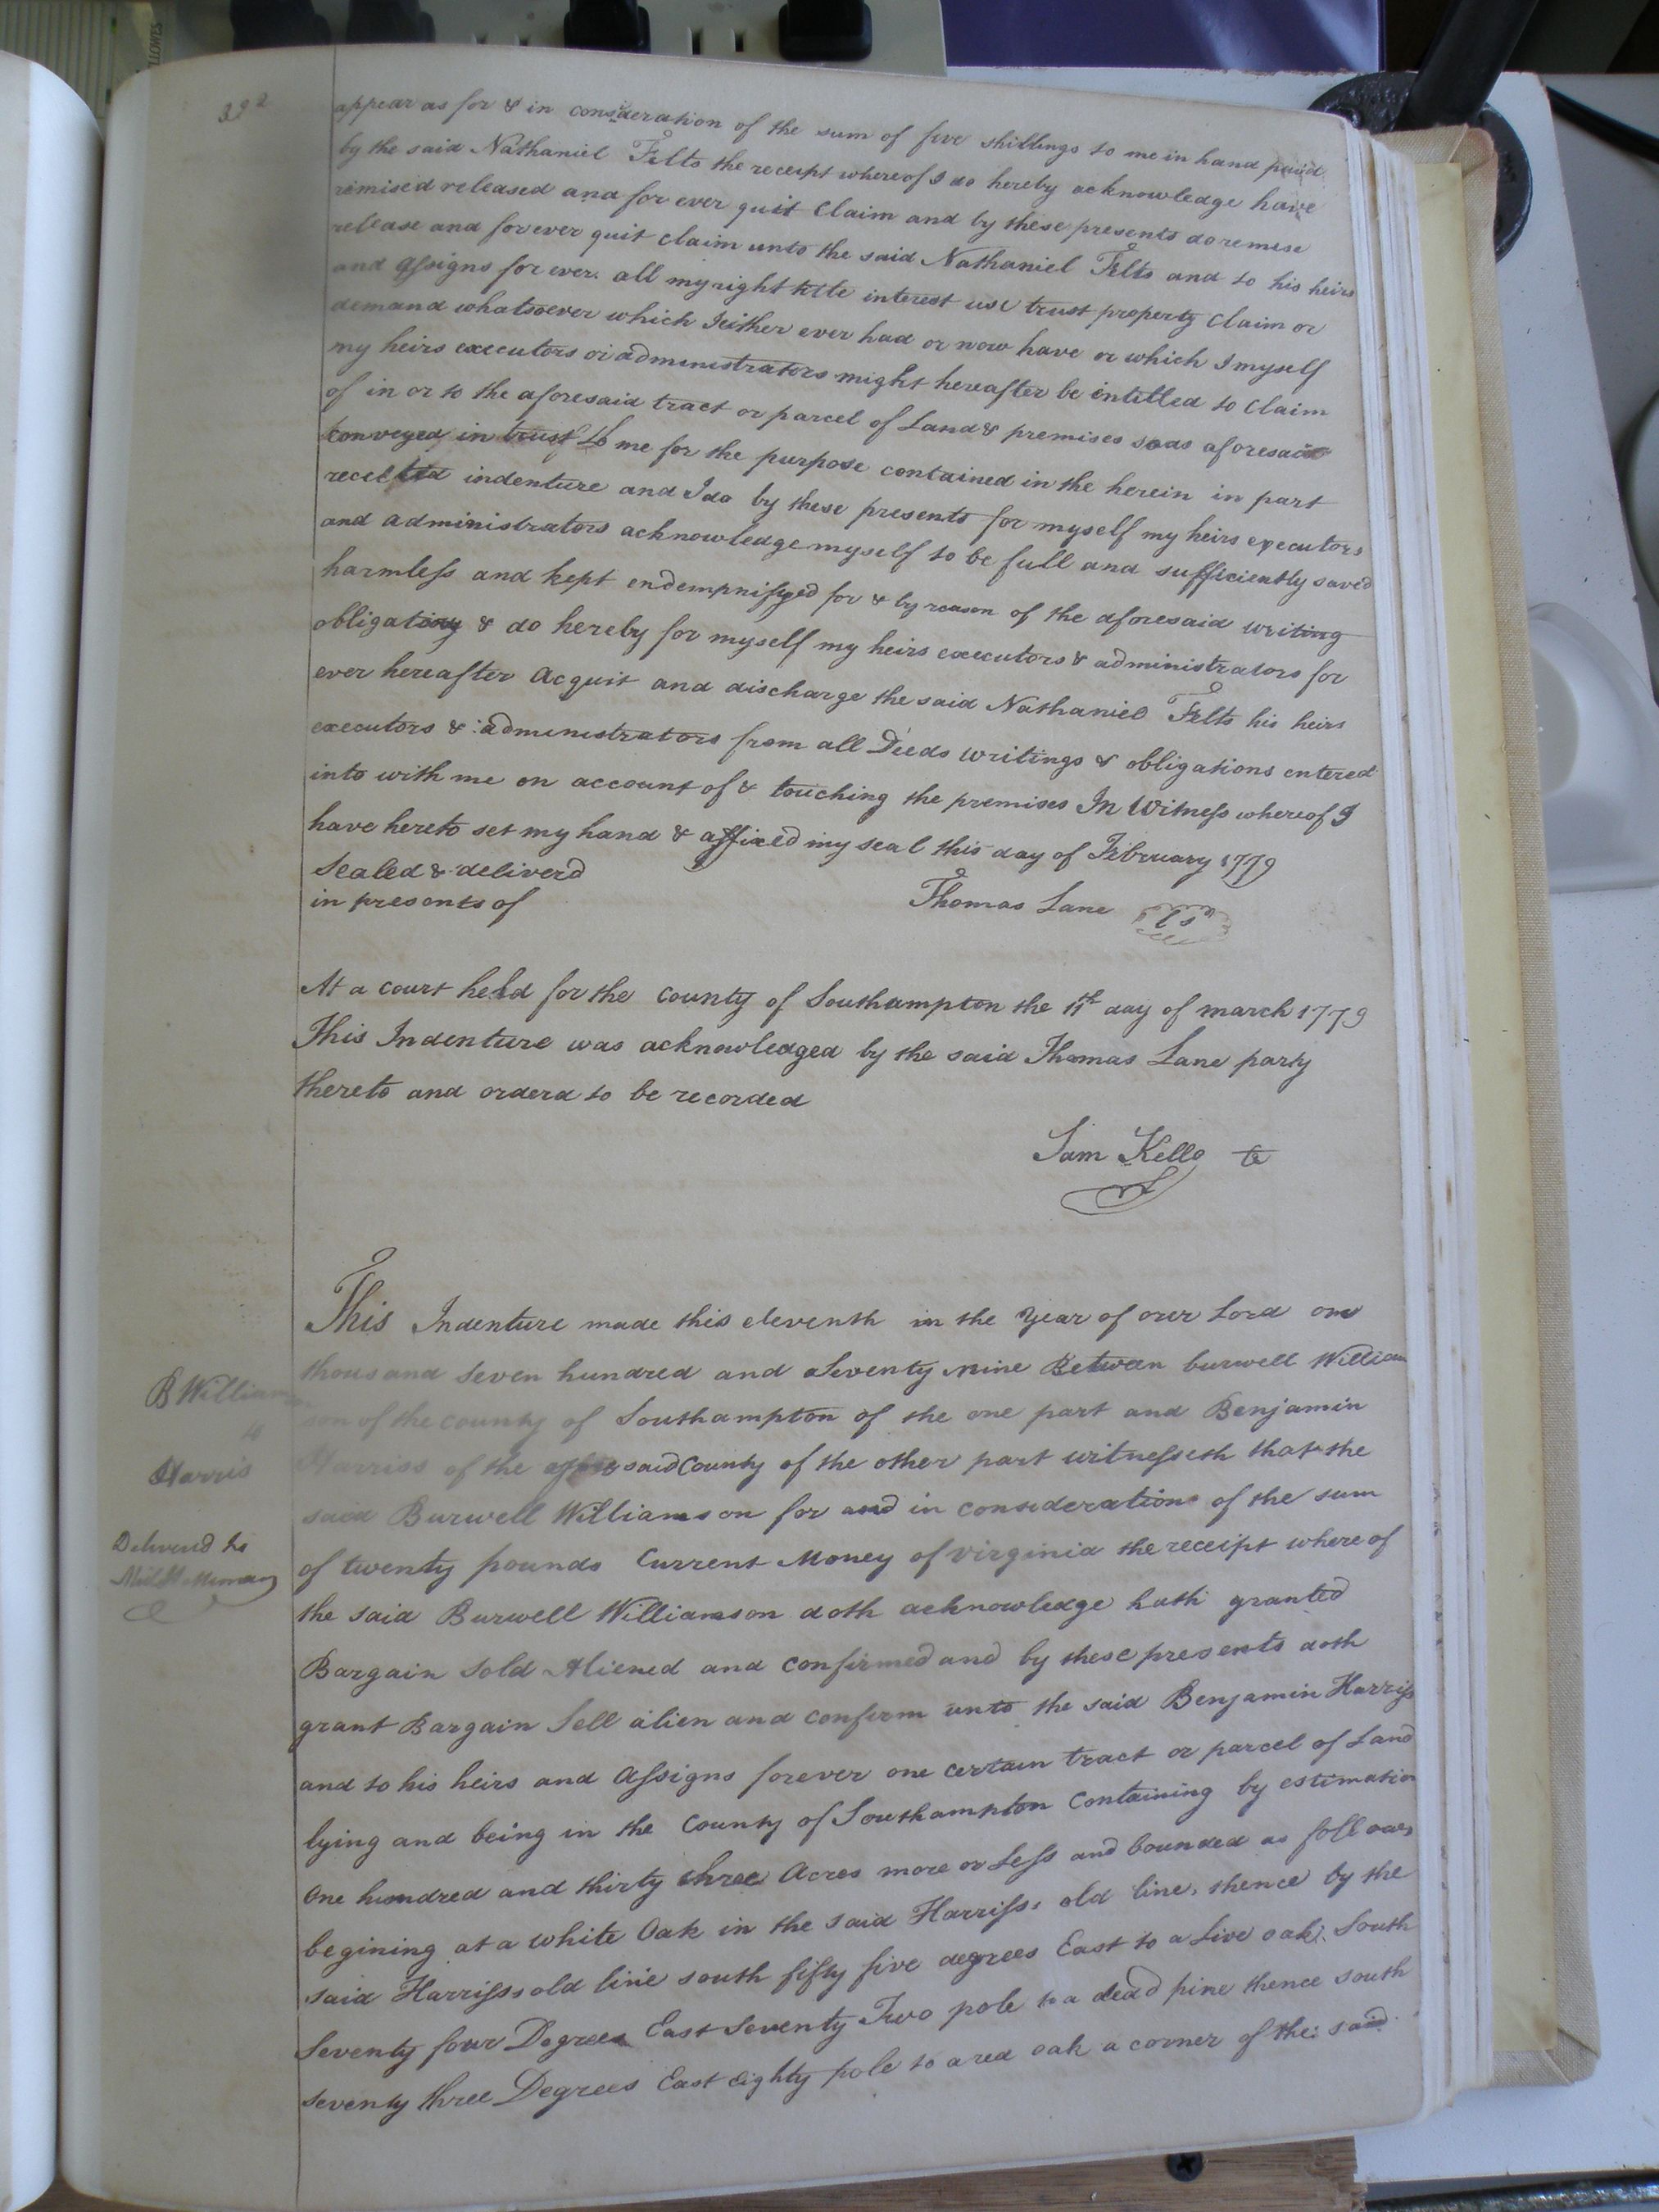 392
appear as for & in consideration of the sum of five shillings to me in hand paid
by the said Nathaniel Felts the receipt whereof I do hereby acknowledge have
remised released and for ever quit Claim and by these presents do remise
release and forever quit claim unto the said Nathaniel Felts and to his heirs
and assigns for ever. all my right title interest use trust property Claim or
demand whatsoever which I either ever had or now have or which I myself
my heirs executors or administrators might hereafter be intitled to Claim
of in or to the aforesaid tract or parcel of Land & premises so as aforesaid
conveyed in trust to me for the purpose contained in the herein in part
recited indenture and I do by these presents for myself my heirs executors
and administrators acknowledge myself to be full and sufficiently saved
harmless and kept endempnifyed for & by reason of the aforesaid writing
obligatory & do hereby for myself my heirs executors & administrators for
ever hereafter Acquit and discharge the said Nathaniel Felts his heirs
executors & administrators from all Deeds writings & obligations entered
into with me on account of & touching the premises In Witness whereof I
have hereto set my hand & affixed my seal this day of February 1779
Sealed & deliverd
in presents of
Thomas Lane Ls
At a court held for the County of Southampton the 11th day of march 1779
This Indenture was acknowledged by the said Thomas Lane party
thereto and orderd to be recorded
Sam Kello
This Indenture made this eleventh in the Year of our Lord one
thousand seven hundred and Seventy nine Between burwell William
B William
son of the County of Southampton of the one part and Benjamin
Harriss of the afore said County of the other part witnesseth that the
Harris
said Burwell Williamson for and in consideration of the sum
Delivered
of twenty pounds Current Money of virginia the receipt where of
the said Burwell Williamson doth acknowledge hath granted
Bargain Sold Aliened and Confirmed and by these presents doth
grant Bargain Sell alien and Confirm unto the said Benjamin Harriss
and to his heirs and Assigns forever one certain tract or parcel of Land
lying and being in the County of Southampton Containing by estimation
One hundred and thirty three Acres more or Less and bounded as follows
begining at a white Oak in the said Harriss's old line, thence by the
said Harriss,s old line south fifty five degrees East to a Live oak; South
Seventy four Degrees East Seventy Two pole to a dead pine thence South
seventy three Degrees East Eighty pole to a red oak a corner of the said